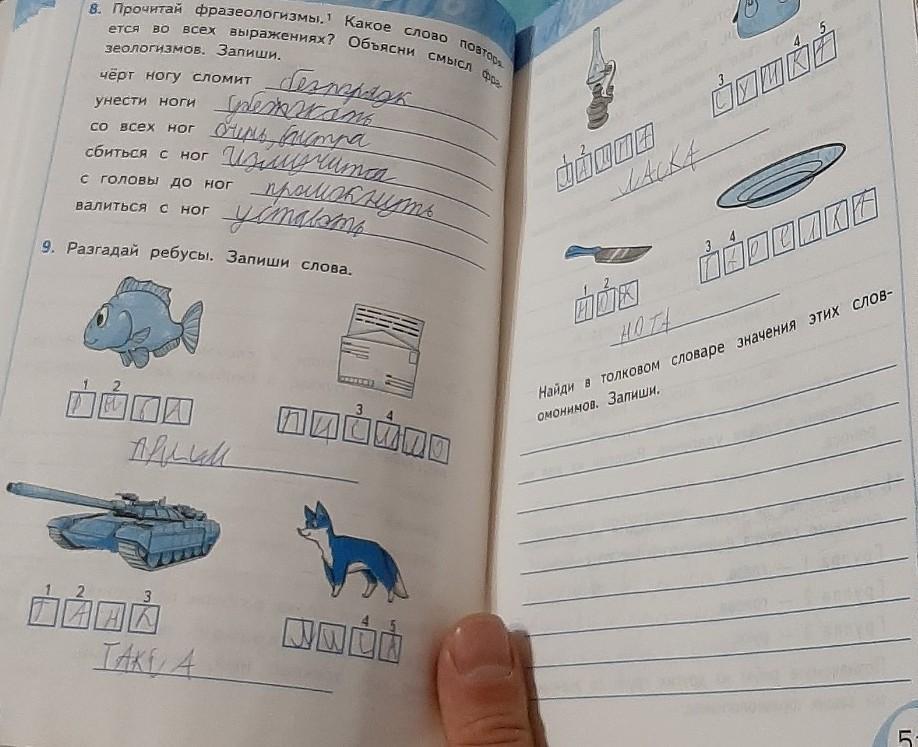 8. Прочитай фразеологизмы.¹ Какое слово повторя-
ется во всех выражениях? Объясни смысл фра-
зеологизмов. Запиши.
чёрт ногу сломит беспорядк
унести ноги убежжать
со всех ног очинь быстра
сбиться с ног Измучится
с головы до ног промокнуть
валиться с ног уставать
9. Разгадай ребусы. Запиши слова.
1 2
РЫБА
3 4
ПИСЬМО
1 2 3
ТАНК
4 5
ЛИСА
ТАКСА
4 5
3
СУМКА
1 2
ЛАМПА
ЛАСКА
3 4
ТАРЕЛКА
1 2
НОЖ
НОТА
Найди в толковом словаре значения этих слов-
омонимов. Запиши.
5